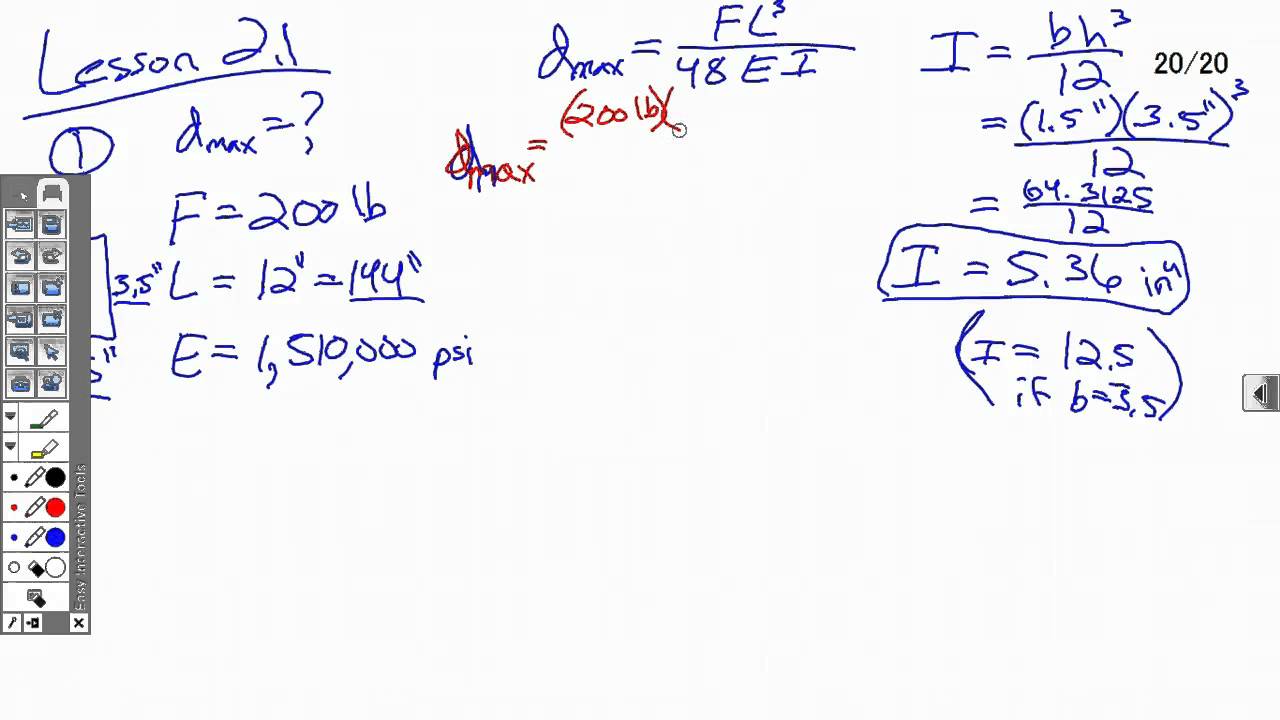 Lesson 2.1
① dmax = ?
F = 200 lb
3.5" L = 12" = 144"
E = 1,510,000 psi
dmax = FL³
48 E I
dmax = (200 lb)(
I = bh³
12
20/20
= (1.5")(3.5")³
12
= 64.3125
12
I = 5.36 in⁴
(I = 12.5
if b=3.5)
Easy Interactive Tools